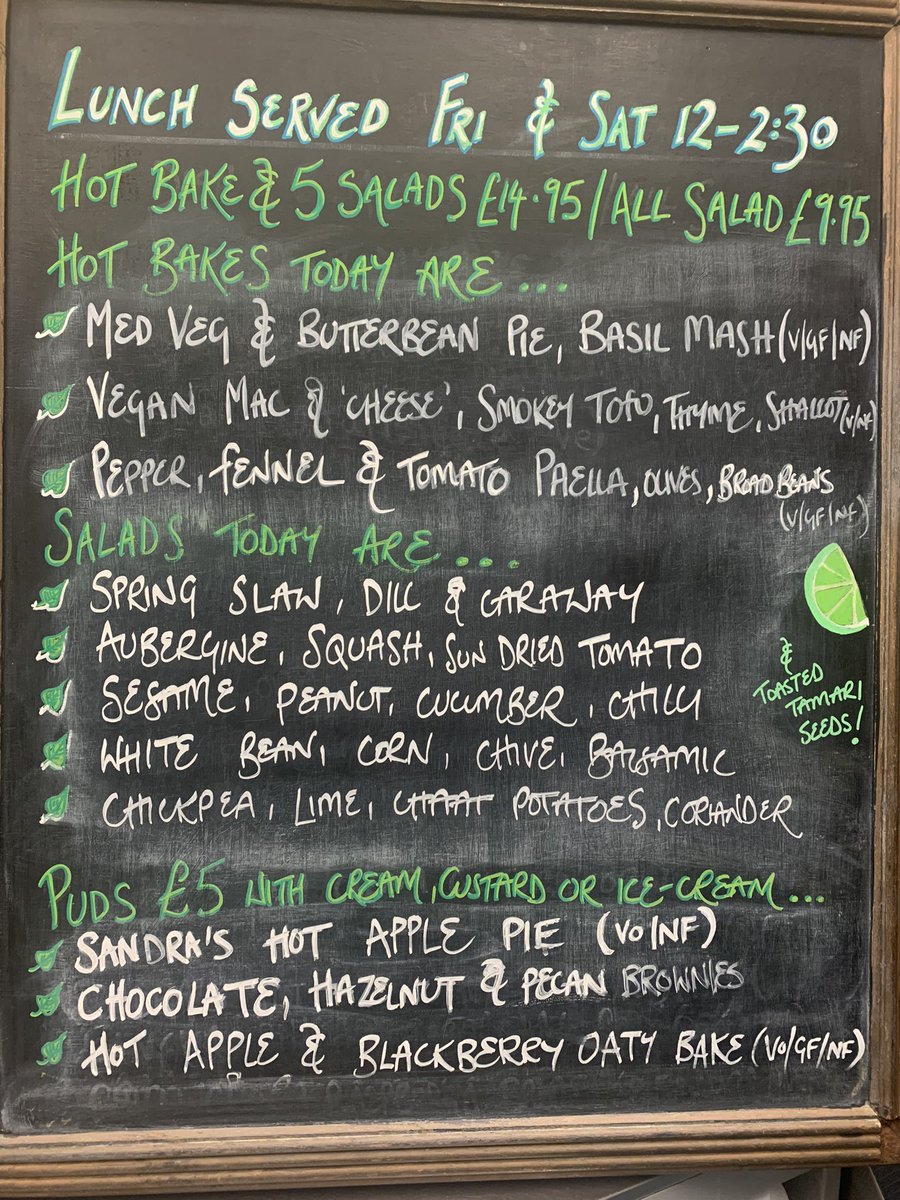 LUNCH SERVED FRI & SAT 12-2:30
HOT BAKE & 5 SALADS £14.95/ALL SALAD £9.95
HOT BAKES TODAY ARE...
MED VEG & BUTTERBEAN PIE, BASIL MASH (V/GF/NF)
VEGAN MAC & 'CHEESE', SMOKEY TOFU, THYME, SHALLOT (V/NF)
PEPPER, FENNEL & TOMATO PAELLA, OLIVES, BROAD BEANS
(V/GF/NF)
SALADS TODAY ARE....
SPRING SLAW, DILL & CARAWAY
AUBERGINE, SQUASH, SUN DRIED TOMATO
SESAME, PEANUT, CUCUMBER, CHILLI
WHITE BEAN, CORN, CHIVE, BALSAMIC
CHICKPEA, LIME, CHAAT POTATOES, CORIANDER
&
TOASTED
TAMARI
SEEDS!
PUDS £5 WITH CREAM, CUSTARD OR ICE-CREAM...
SANDRA'S HOT APPLE PIE (VO/NF)
CHOCOLATE, HAZELNUT & PECAN BROWNIES
HOT APPLE & BLACKBERRY OATY BAKE (VO/GF/NF)